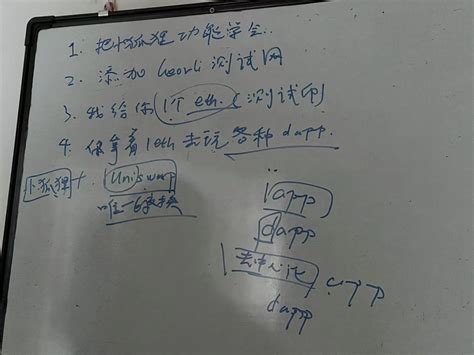 1. 把小狐狸功能学会.
2. 添加 Goerli 测试网
3. 我给你 1个 eth. (测试币)
4. 你拿着 1eth 去玩各种 dapp.
小狐狸 + Uniswap
app
dapp
去中心化 app
dapp